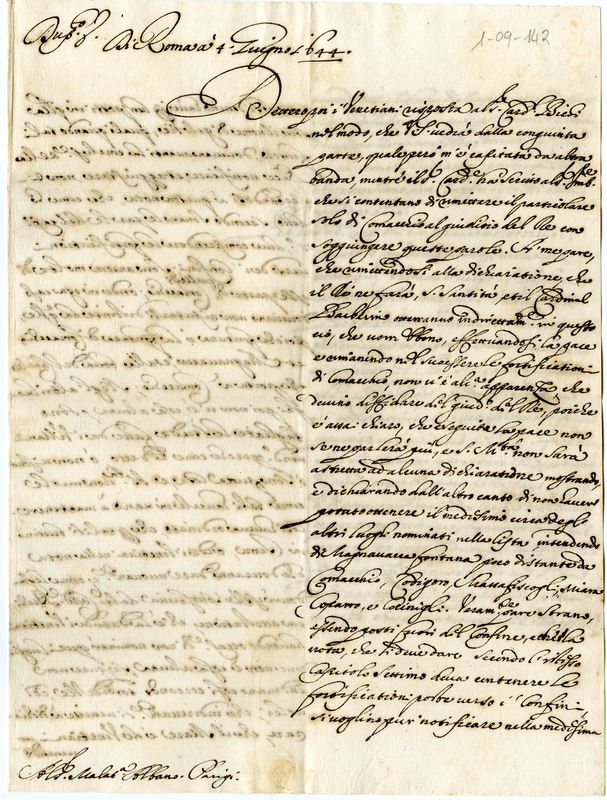 1-09-142
Di Roma a' 4. Giugno 1644.
Dettero poi i Venetiani risposta al S.r Card. Bichi
nel modo, che V.S. vedrà dalla congiunta
parte, quale però m'è capitata da altra
banda, mentre il S.r Card.e ha scritto al S.r
che si contentano di rimettere il particolare
solo di Comacchio al giuditio del Re con
soggiungere queste parole. A me pare,
che rimettendosi alla dichiaratione, che
il Re ne farà, S. Santità et il Cardinal
Barberino otterranno indirettam.te in questo
ciò, che vorrebbono, effettuandosi la pace
e rimanendo nel suo essere le fortificationi
di Comacchio, non v'è alc.a apparenza che
devino diffidare del giud.o del Re, poiche
è assai chiaro, che eseguita la pace non
se ne parlerà più, e S. M.tà non sarà
astretta ad alcuna dichiaratione mostrando,
e dichiarando dall'altro canto di non havere
potuto ottenere il medesimo circa degli
altri luoghi nominati nella lista intendendo
di Magnavacca fontana poco distante da
Comacchio, Codigoro,
Coparo, e Veram.te pare strano,
essendo posti fuori del Confine, e che la
nota, che si deve dare secondo l'istesso
Capitolo settimo deva contenere le
fortificationi poste verso i Confini
si voglino pur notificare nella medesima